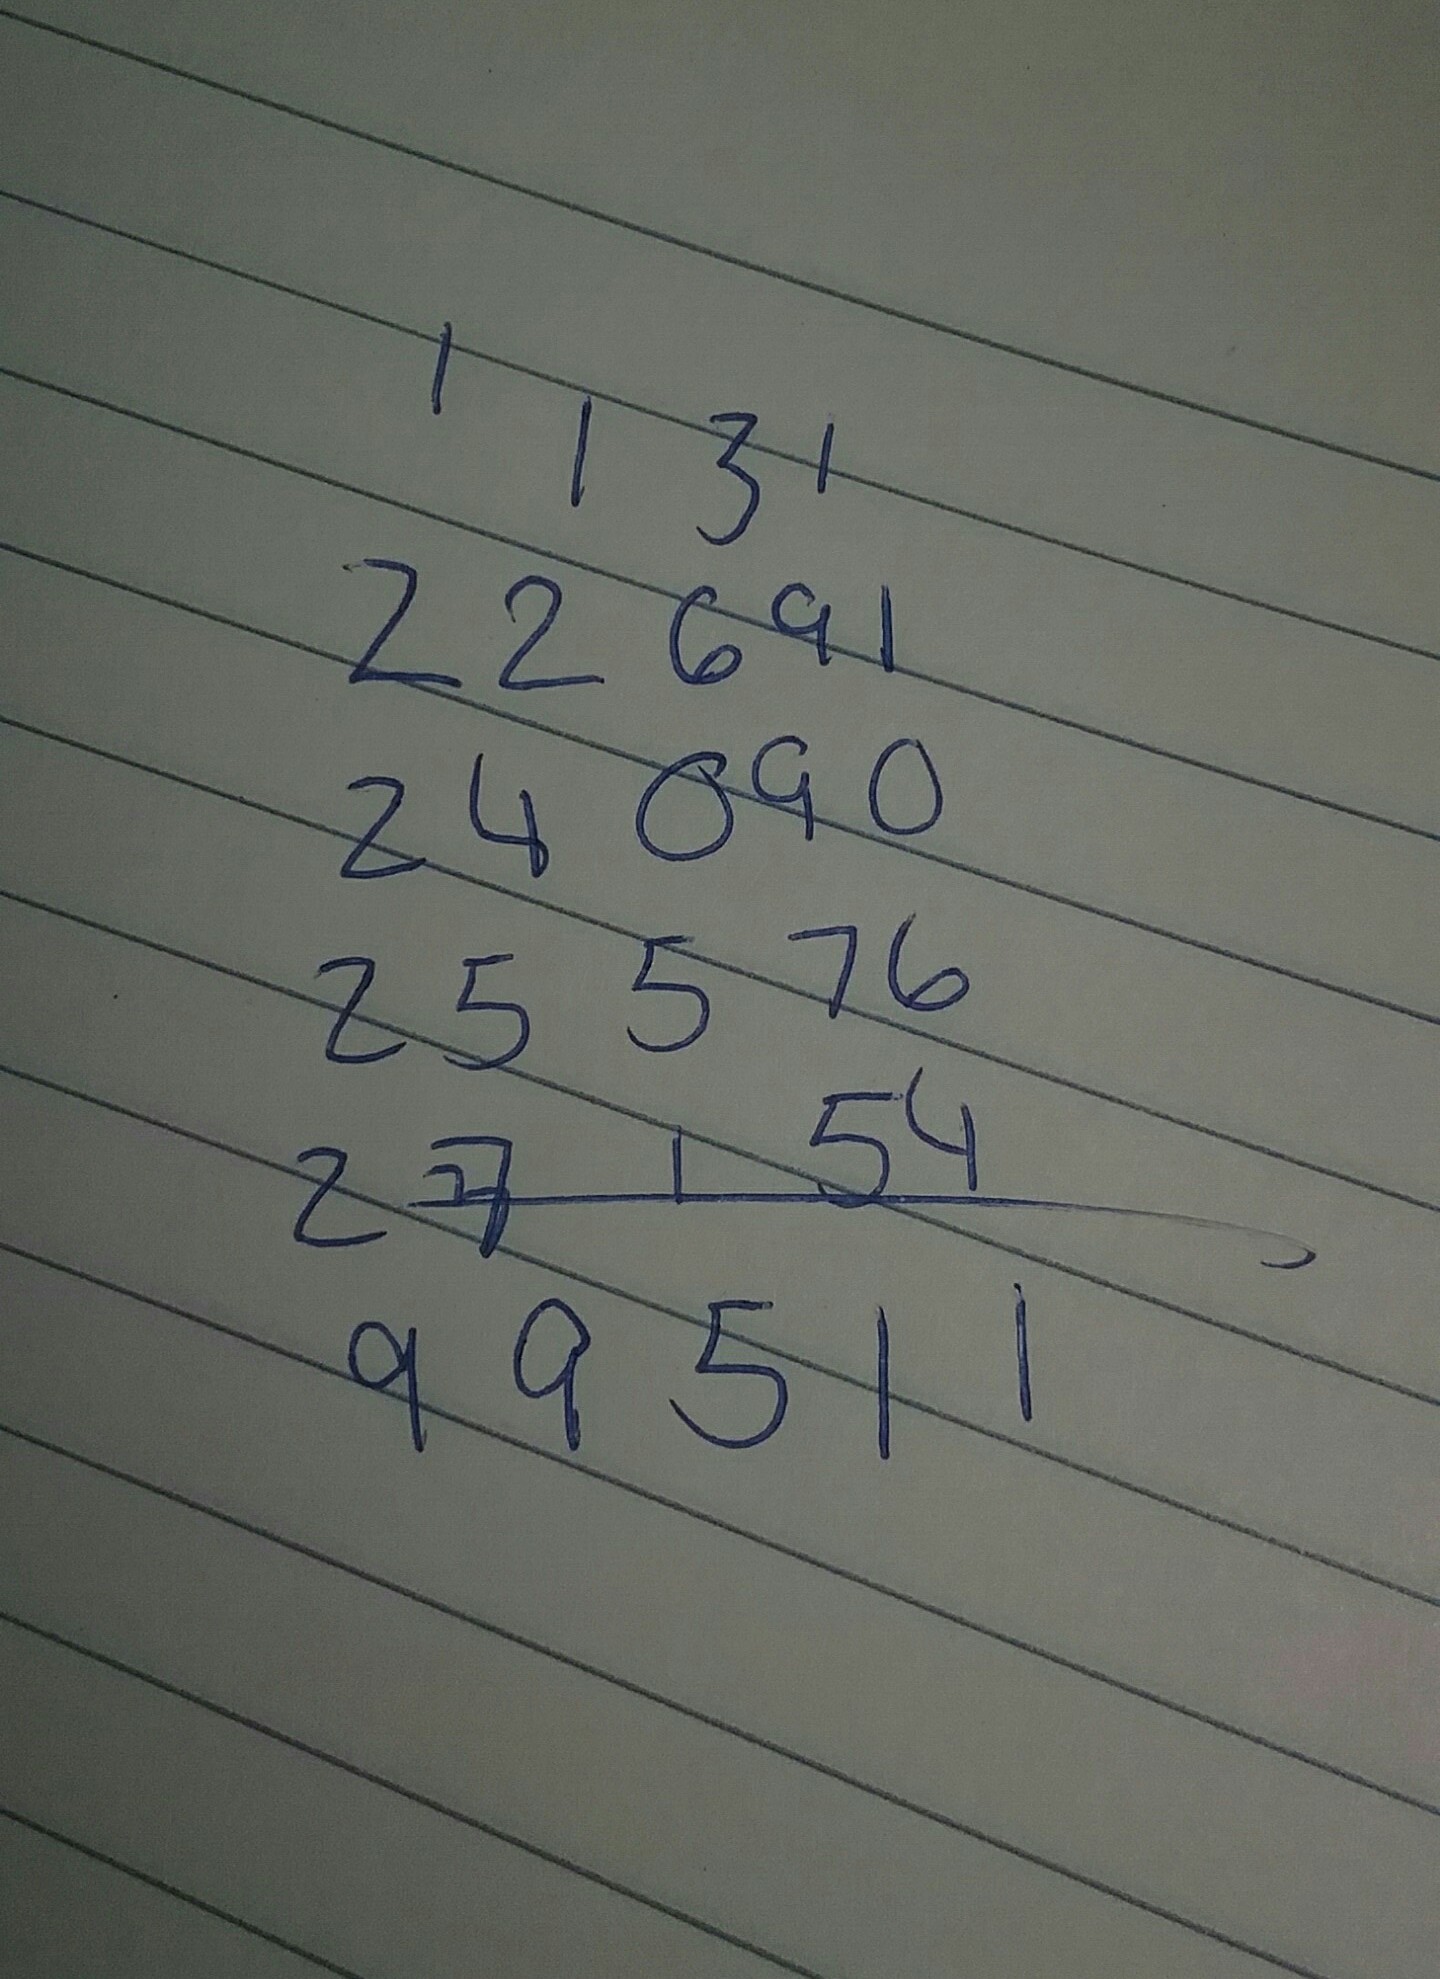 1 1 3 1
22691
24090
25576
27154
99511